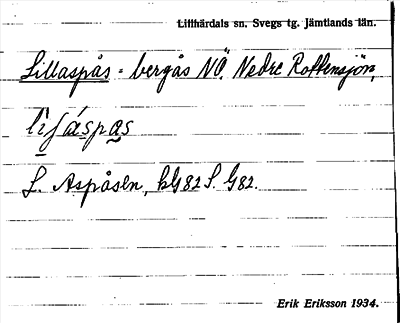 Lillhärdals sn. Svegs tg. Jämtlands län.
Lillaspås = bergås NÖ. Nedre Rottensjön,
L. Aspåsen,
Erik Eriksson 1934.